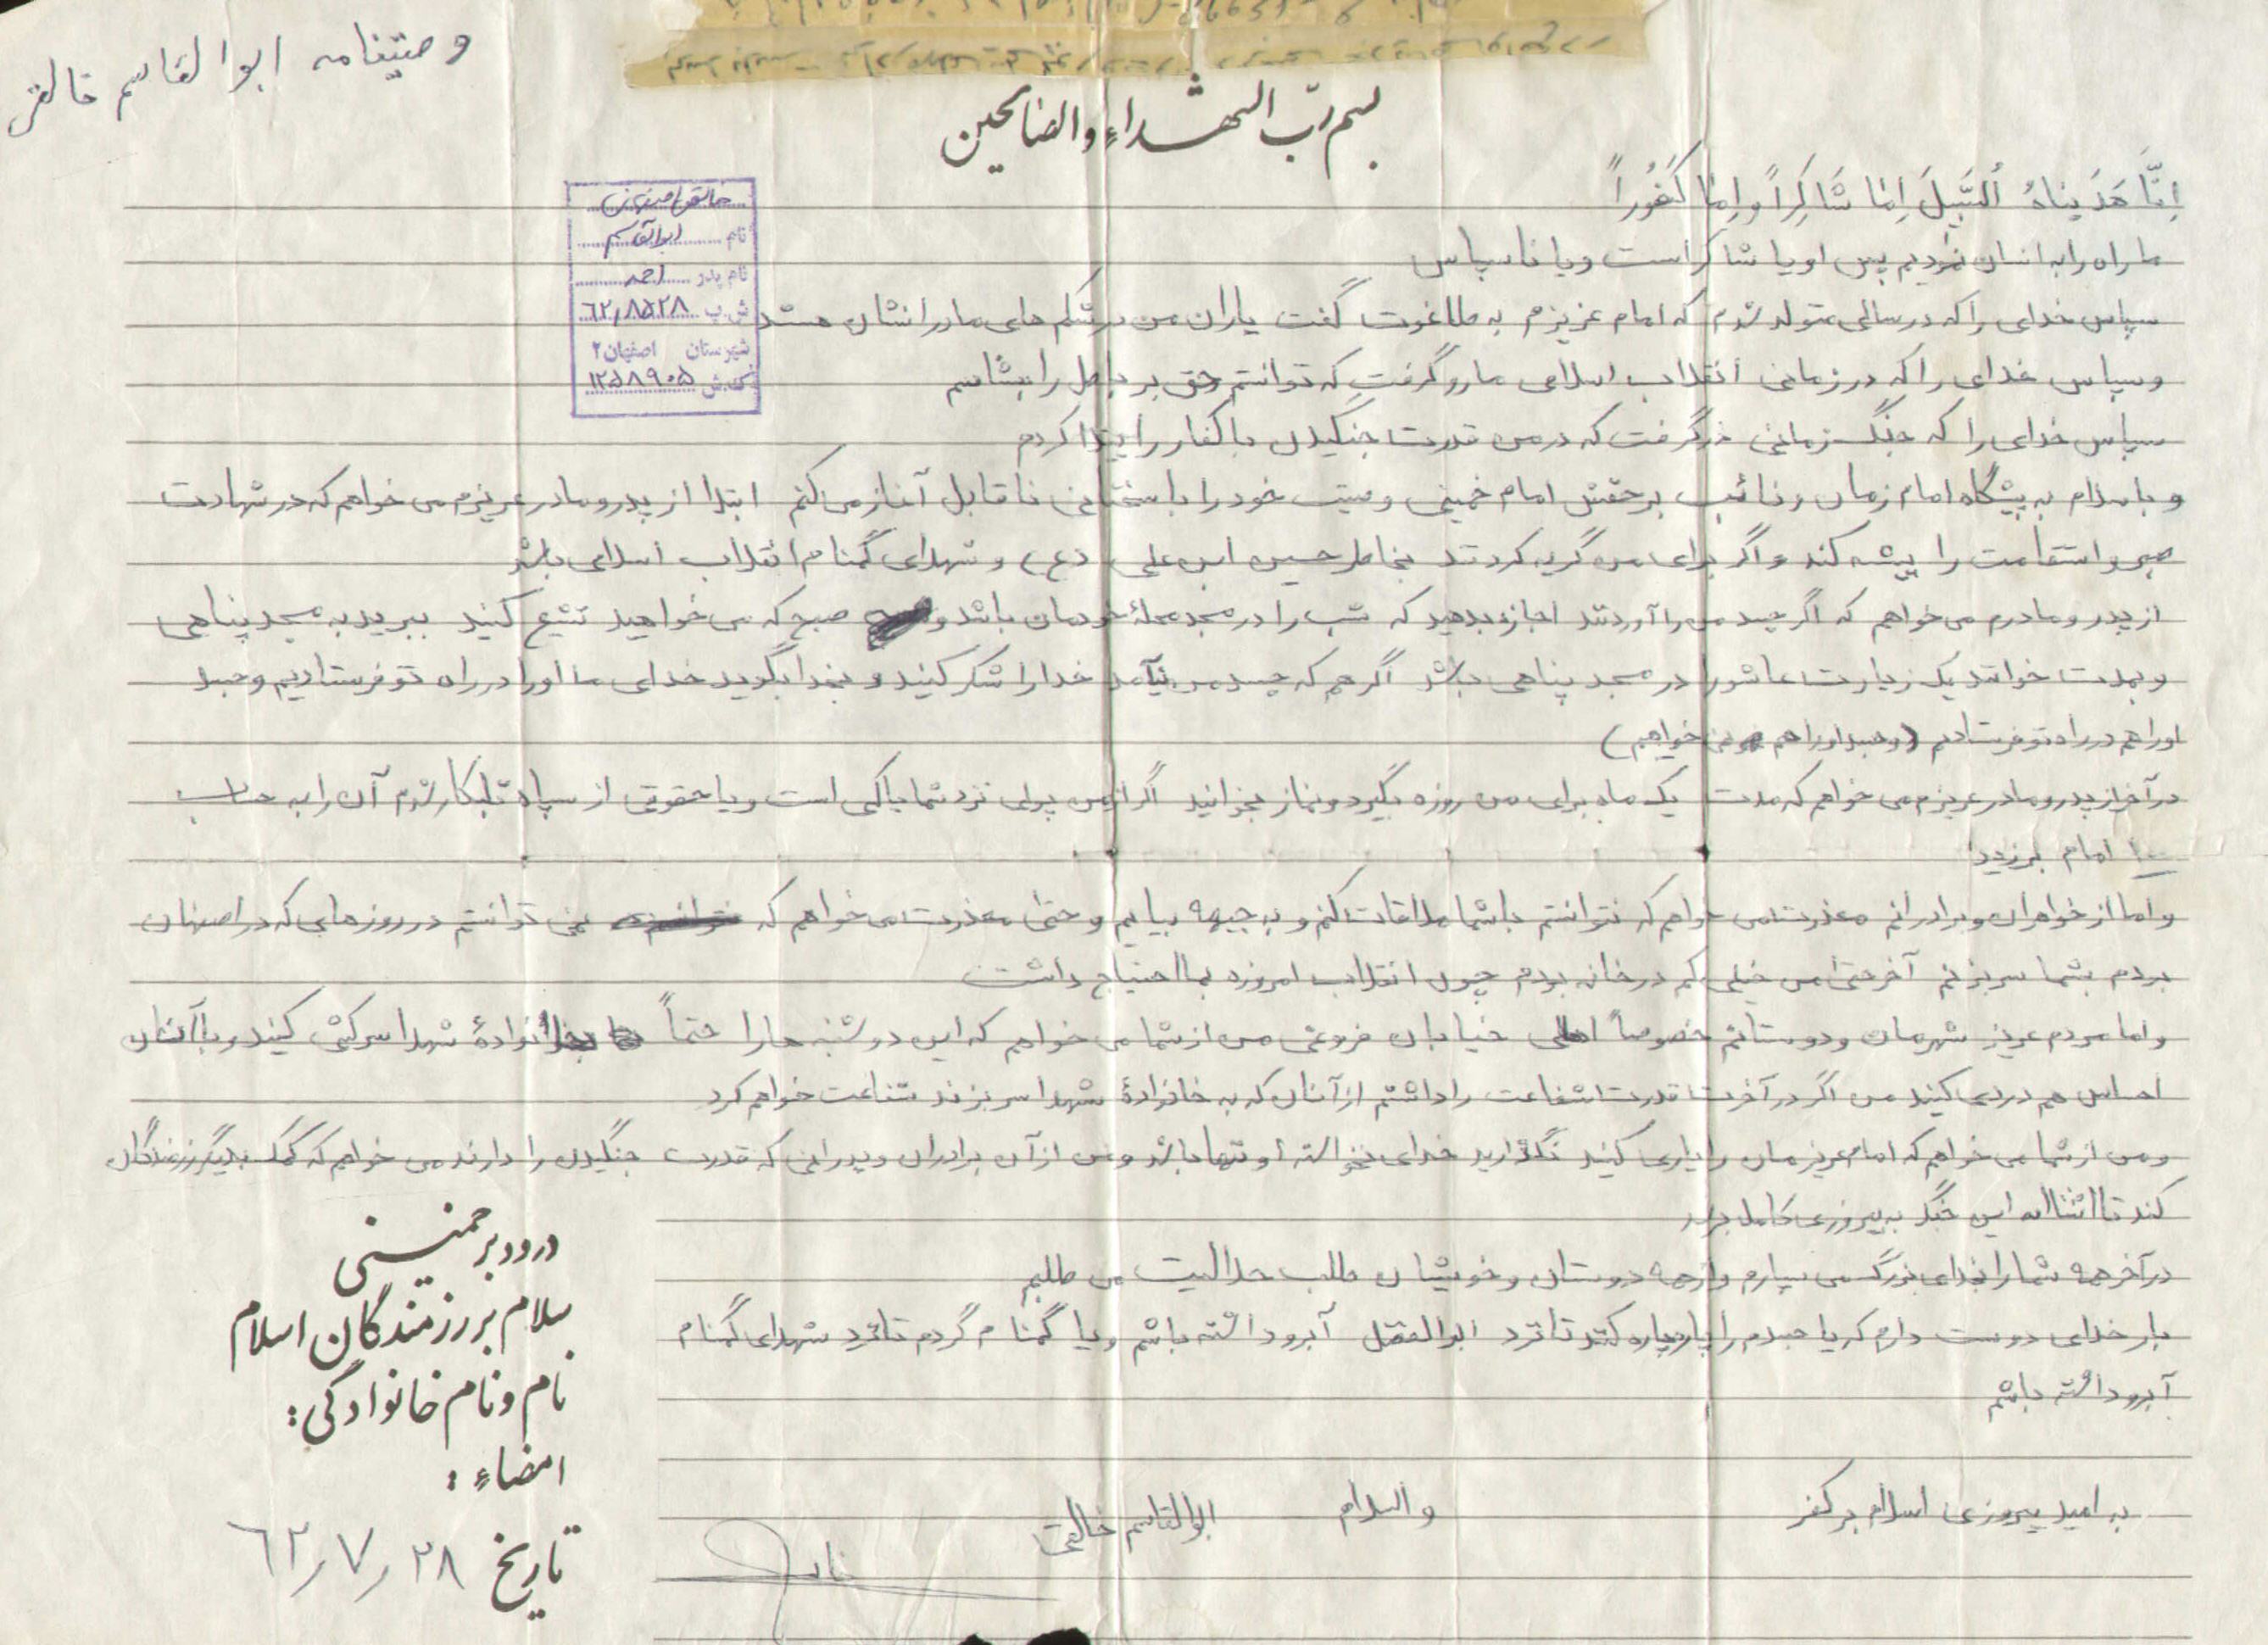 وصیتنامه ابوالقاسم خالقی
بسم ربّ الشهداء والصالحین
خالقی
نام ابوالقاسم
نام پدر احمد
ش.پ ۶۲٫۸۵۲۸
شهرستان اصفهان ۲
کد.ش ۱۲۵۸۹۰۵
اِنّا هَدَیناهُ السَّبیلَ اِمّا شَاکِراً و اِمّا کَفُوراً
ما راه را به انسان نمودیم پس او یا شاکر است و یا ناسپاس
سپاس خدای را که در سالی متولد شدم که امام عزیزم به طاغوت گفت یاران من در شکم های مادرانشان هستند
وسپاس خدای را که در زمانی انقلاب اسلامی ما رو گرفت که توانستم حق بر باطل را بشناسم
سپاس خدای را که جنگ زمانی در گرفت که در من قدرت جنگیدن با کفار را پیدا کردم
و با سلام به پیشگاه امام زمان و نائب برحقش امام خمینی وصیت خود را با سخنانی ناقابل آغاز می کنم ابتدا از پدر و مادر عزیزم می خواهم که در شهادت
صبر و استقامت را پیشه کند و اگر برای من گریه کردند بخاطر حسین ابن علی (ع) و شهدای گمنام انقلاب اسلامی باشد
از پدر و مادرم می خواهم که اگر جسد من را آوردند اجازه بدهید که شب را در مسجد محلهٔ خودمان باشد و صبح که می خواهید تشیع کنید ببرید به مسجد پناهی
و بمدت خواندن یک زیارت عاشورا در مسجد پناهی باشد اگر هم که جسد من نیامد خدا را شکر کنید و بخدا بگوید خدای ما او را در راه تو فرستادیم و جسد
او را هم در راه تو فرستادیم (و جسد او را هم نمی خواهیم)
در آخر از پدر و مادر عزیزم می خواهم که مدت یک ماه برای من روزه بگیرد و نماز بخوانید اگر از من پولی نزد شما یا کسی است و یا حقوقی از سپاه طلبکار شدم آن را به حساب
۱۰۰ امام بریزید
و اما از خواهران و برادرانم معذرت می خواهم که نتوانستم با شما ملاقات کنم و به جبهه بیایم و حتی معذرت می خواهم که نمی توانستم در روزهایی که در اصفهان
بودم بشما سر بزنم آخر حتی من خیلی کم در خانه بودم چون انقلاب امروزه بما احتیاج داشت
و اما مردم عزیز شهرمان و دوستانم خصوصاً اهالی خیابان فروغی من از شما می خواهم که این دوشنبه ها را حتماً بخانوادهٔ شهدا سرکشی کنید و با آنان
احساس هم دردی کنید من اگر در آخرت قدرت شفاعت را داشتم از آنان که به خانوادهٔ شهدا سر بزنند شفاعت خواهم کرد
و من از شما می خواهم که امام عزیزمان را یاری کنید نگذارید خدای نخواسته او تنها باشد و من از آن برادران و پدرانی که قدرت جنگیدن را دارند می خواهم که کمک بدیگر رزمندگان
کند تا انشاالله این جنگ به پیروزی کامل برسد
در آخر همه شما را بخدای بزرگ می سپارم و از همه دوستان و خویشان طلب حلالیت می طلبم
بار خدای دوست دارم که یا جسدم را پاره پاره کنند تا نزد ابوالفضل آبرو داشته باشم و یا گمنام گردم تا نزد شهدای گمنام
آبرو داشته باشم
به امید پیروزی اسلام بر کفر والسلام ابوالقاسم خالقی
درود بر خمینی
سلام بر رزمندگان اسلام
نام و نام خانوادگی:
امضاء:
تاریخ ۶۲٫۷٫۲۸